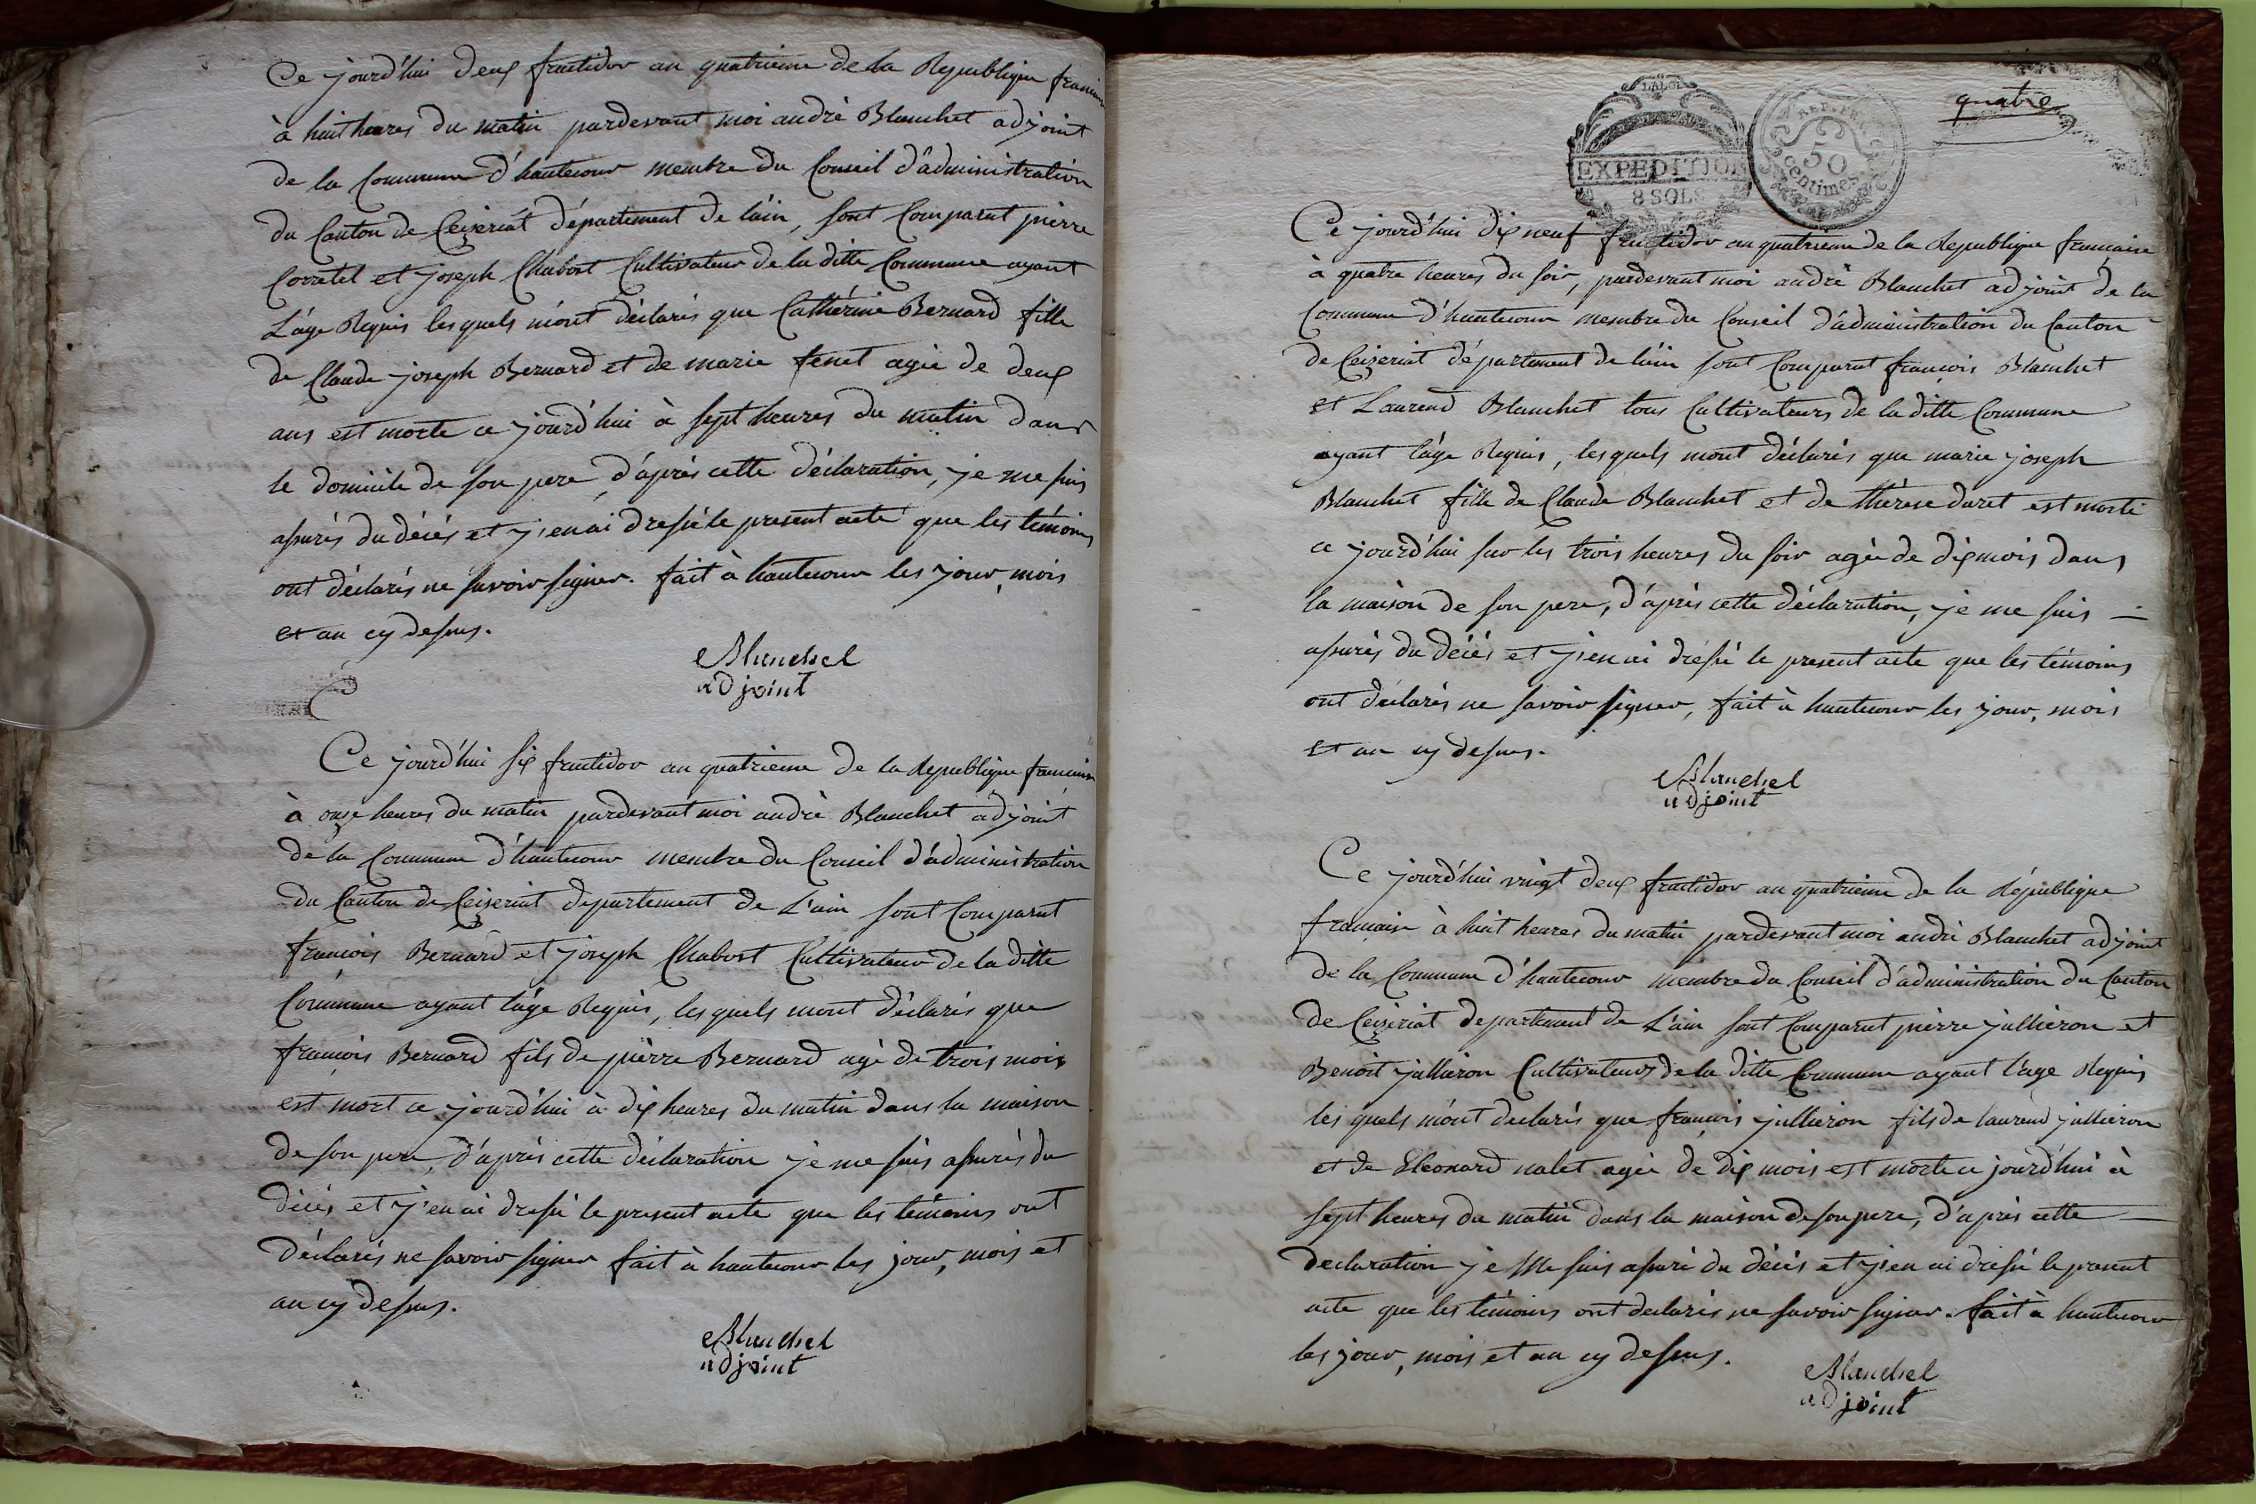 Ce jourd'hui deux fructidor an quatrieme de la Republique
à huit heures du matin pardevant moi andrè Blanchet adjoint
de la Commune d'hautecour membre du Conseil d'administration
du Canton de Ceizeriat département de l'ain, sont Comparut pierre
Corratel et joseph Chabost Cultivateur de la ditte Commune ayant
L'âge Requis lesquels m'ont déclarés que Cathérine Bernard fille
de Claude joseph Bernard et de marie fenet agée de deux
ans est morte ce jourd'hui à sept heures du matin dans
le domicile de son pere, d'après cette déclaration, je me suis
assurés du décés et j'en ai dressé le present acte que les témoins
ont déclarés ne savoir signer. fait à hautecour les jour, mois
et an cy dessus.
Blanchet
adjoint
Ce jourd'hui six fructidor an quatrieme de la Republique francaise
à onze heures du matin pardevant moi andrè Blanchet adjoint
de la Commune d'hautecour membre du Conseil d'administration
du Canton de Ceizeriat departement de L'ain sont Comparut
francois Bernard et joseph Chabost Cultivateur de la ditte
Commune ayant l'âge Requis, lesquels m'ont déclarés que
francois Bernard fils de pierre Bernard agé de trois mois
est mort ce jourd'hui à dix heures du matin dans la maison
de son pere, d'après cette déclaration je me suis assurés du
décés et j'en ai dressé le present acte que les témoins ont
déclarés ne savoir signer fait à hautecour les jour, mois et
an cy dessus.
Blanchet
adjoint
quatre
LA LOI
EXPEDITION
8 SOLS
REP. FRA.
50
Centimes
Ce jourd'hui dix neuf fructidor an quatrieme de la Republique francaise
à quatre heures du soir, pardevant moi andrè Blanchet adjoint de la
Commune d'hautecour membre du Conseil d'administration du Canton
de Ceizeriat département de l'ain sont Comparut francois Blanchet
et Laurend Blanchet tous Cultivateurs de la ditte Commune
ayant l'âge Requis, lesquels m'ont déclarés que marie joseph
Blanchet fille de Claude Blanchet et de thérese duret est morte
ce jourd'hui sur les trois heures du soir agée de dix mois dans
la maison de son pere, d'après cette déclaration, je me suis
assurés du décés et j'en ai dressé le present acte que les témoins
ont déclarés ne savoir signer, fait à hautecour les jour, mois
et an cy dessus.
Blanchet
adjoint
Ce jourd'hui vingt deux fructidor an quatrieme de la République
francaise à huit heures du matin pardevant moi andrè Blanchet adjoint
de la Commune d'hautecour membre du Conseil d'administration du Canton
de Ceizeriat departement de L'ain sont Comparut pierre jullieron et
Benoit jullieron Cultivateurs de la ditte Commune ayant l'age Requis
lesquels m'ont declarés que francois jullieron fils de laurend jullieron
et de Eleonard nalet agée de dix mois est morte ce jourd'hui à
sept heures du matin dans la maison de son pere, d'après cette
declaration je me suis assuré du décés et j'en ai dressé le present
acte que les témoins ont declarés ne savoir signer. fait à hautecour
les jour, mois et an cy dessus.
Blanchet
adjoint